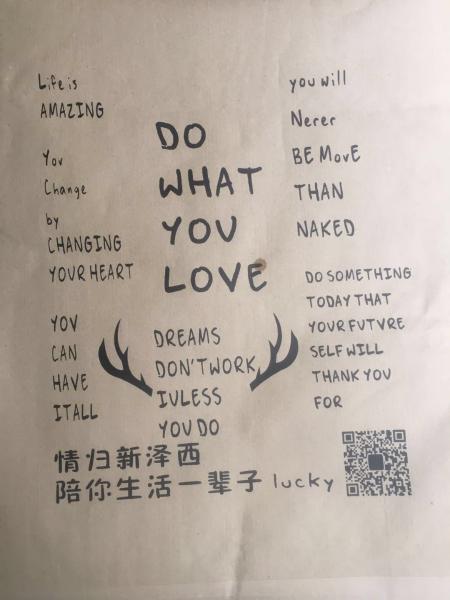 Life is
AMAZING
You
Change
by
CHANGING
YOUR HEART
YOV
CAN
HAVE
ITALL
DO
WHAT
YOU
LOVE
DREAMS
DON'T WORK
IVLESS
YOV DO
you will
Nerer
BE MovE
THAN
NAKED
DO SOMETHING
TODAY THAT
YOUR FUTVRE
SELF WILL
THANK YOU
FOR
情归新泽西
陪你生活一辈子 lucky